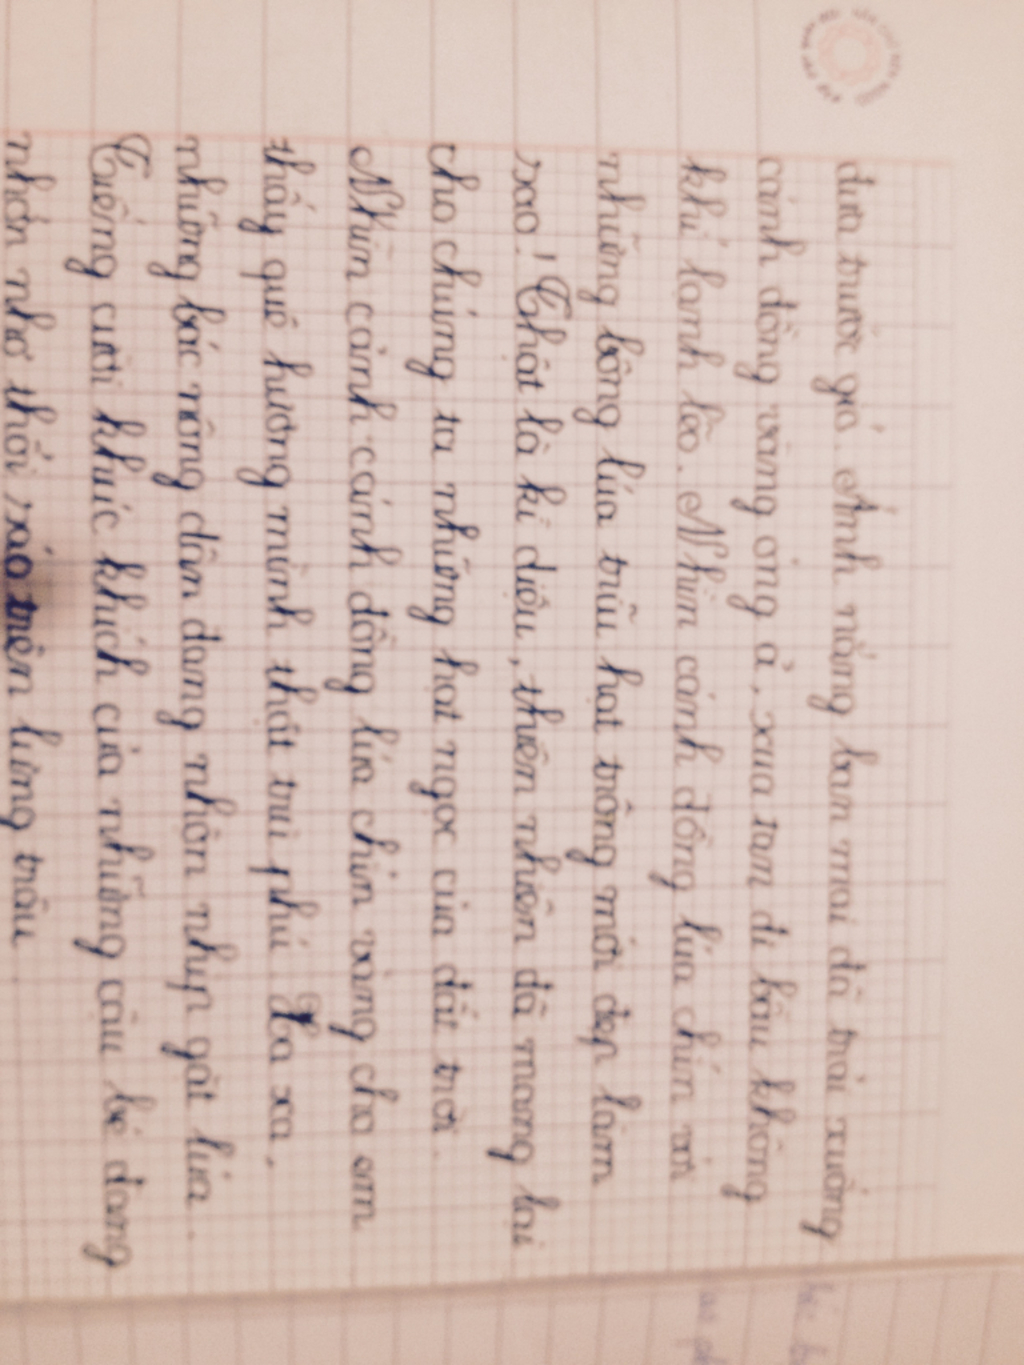 đưa trước gió. Ánh nắng ban mai đã trải xuống
cánh đồng vàng óng ả, xua tan đi bầu không
khí lạnh lẽo. Nhìn cánh đồng lúa chín với
những bông lúa trĩu hạt trông mới đẹp làm
sao! Thật là kì diệu, thiên nhiên đã mang lại
cho chúng ta những hạt ngọc của đất trời.
Nhìn cảnh cánh đồng lúa chín vàng cho em
thấy quê hương mình thật trù phú. Xa xa,
những bác nông dân đang nhộn nhịp gặt lúa.
Tiếng cười khúc khích của những cậu bé đang
nhởn nhơ thổi sáo trên lưng trâu